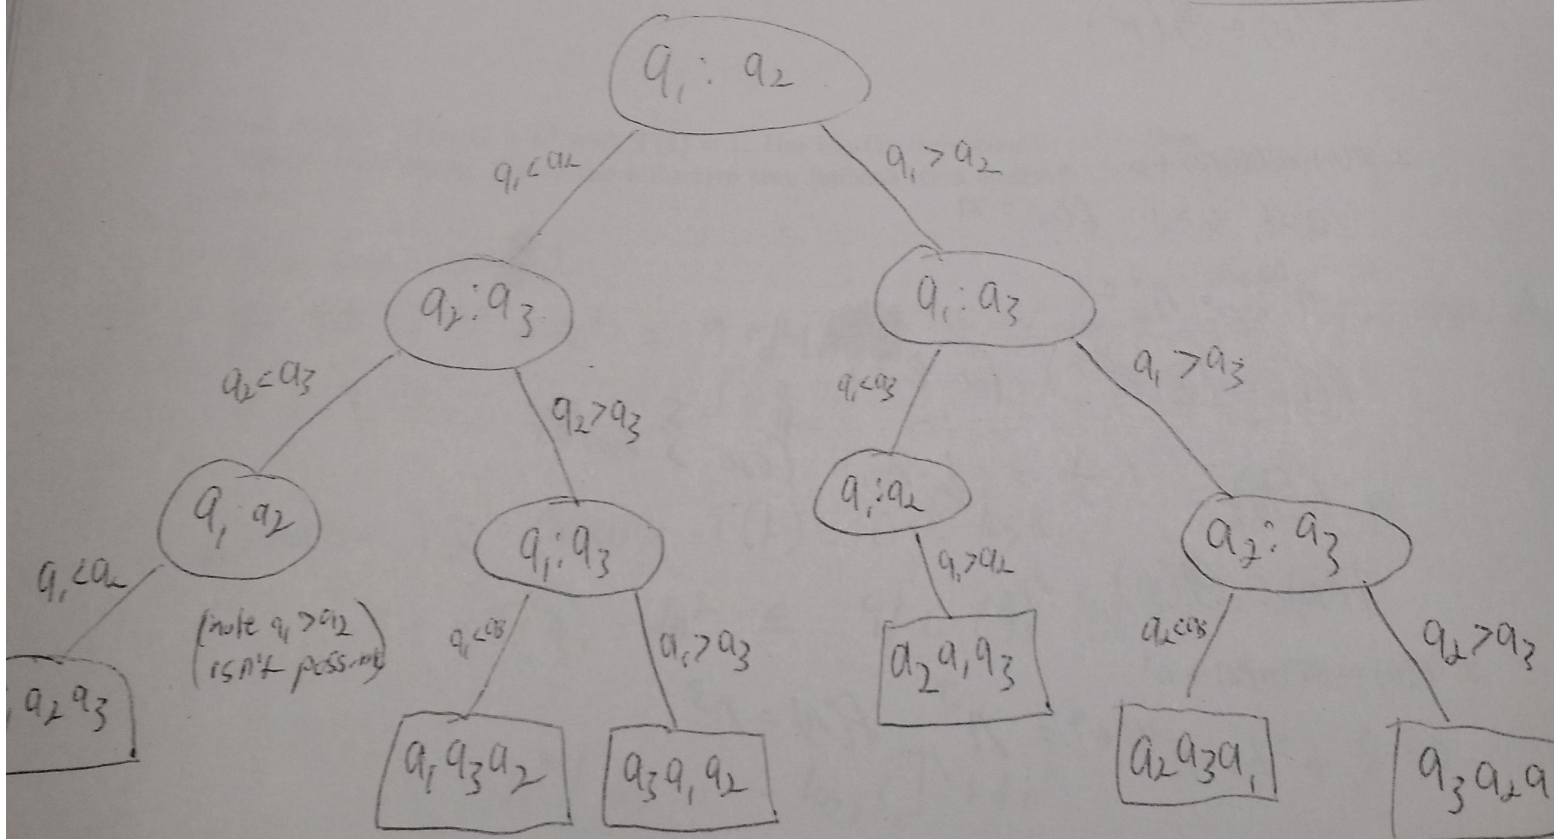 a₁ : a₂
a₁ < a₂
a₁ > a₂
a₂ : a₃
a₁ : a₃
a₂ < a₃
a₂ > a₃
a₁ < a₃
a₁ > a₃
a₁ : a₂
a₁ : a₃
a₁ : a₂
a₂ : a₃
a₁ < a₂
(note a₁ > a₂
isn't
a₁ < a₃
a₁ > a₃
a₁ > a₂
a₂ < a₃
a₂ > a₃
a₂ a₃
a₁ a₃ a₂
a₃ a₁ a₂
a₂ a₁ a₃
a₂ a₃ a₁
a₃ a₂ a